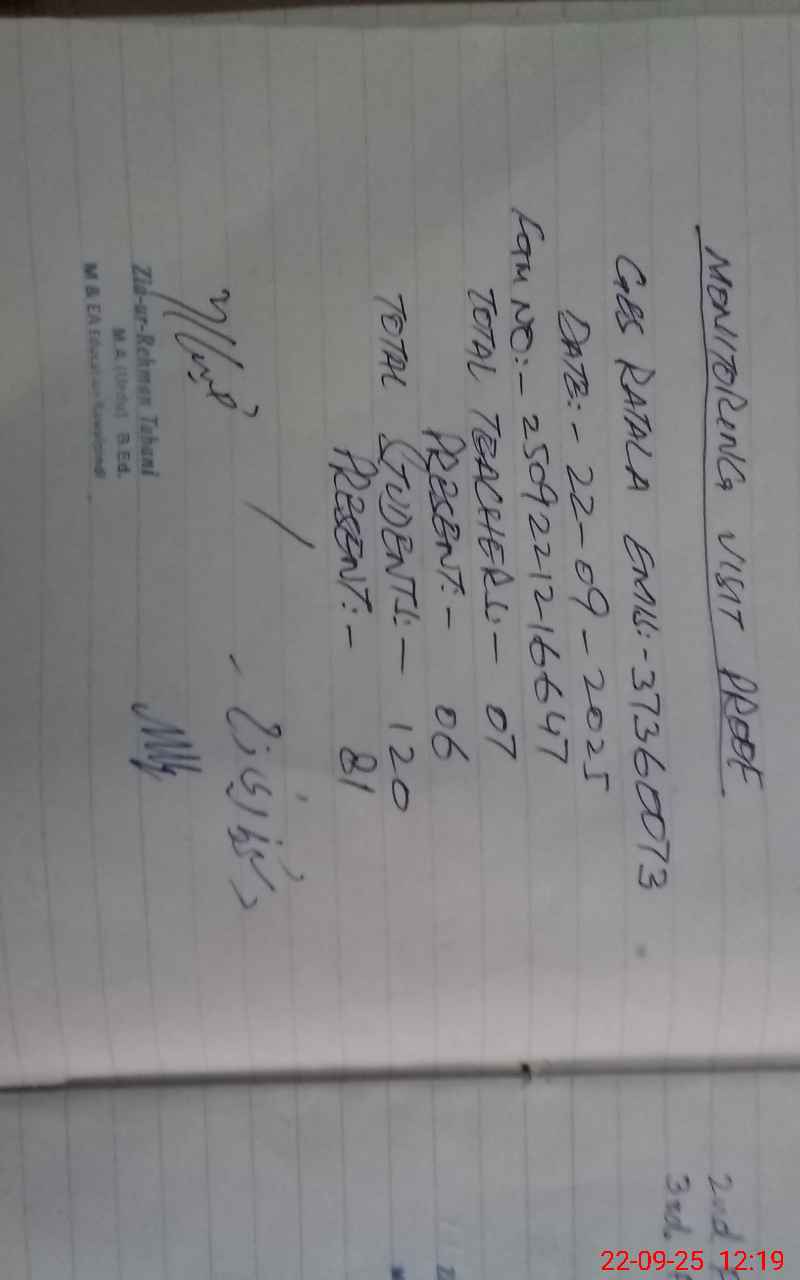 MONITORING VISIT PROOF
GBS RATALA EMIS:-37360073
DATE:- 22-09-2025
TOTAL TEACHERS:- 07
PRESENT:- 06
TOTAL STUDENTS:- 120
PRESENT:- 81
Zia-ur-Rehman Tabani
M.A (Urdu) B.Ed.
M & EA Education Rawalpindi
2nd
3rd
22-09-25 12:19